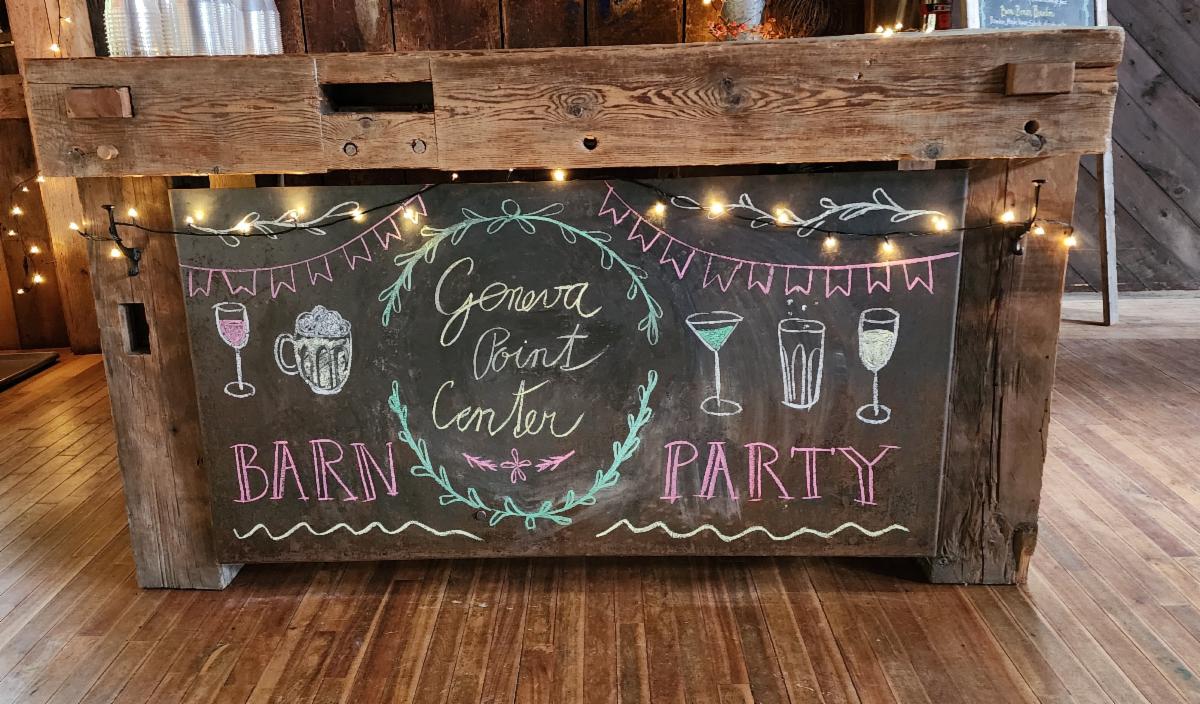 Geneva
Point
Center
BARN PARTY